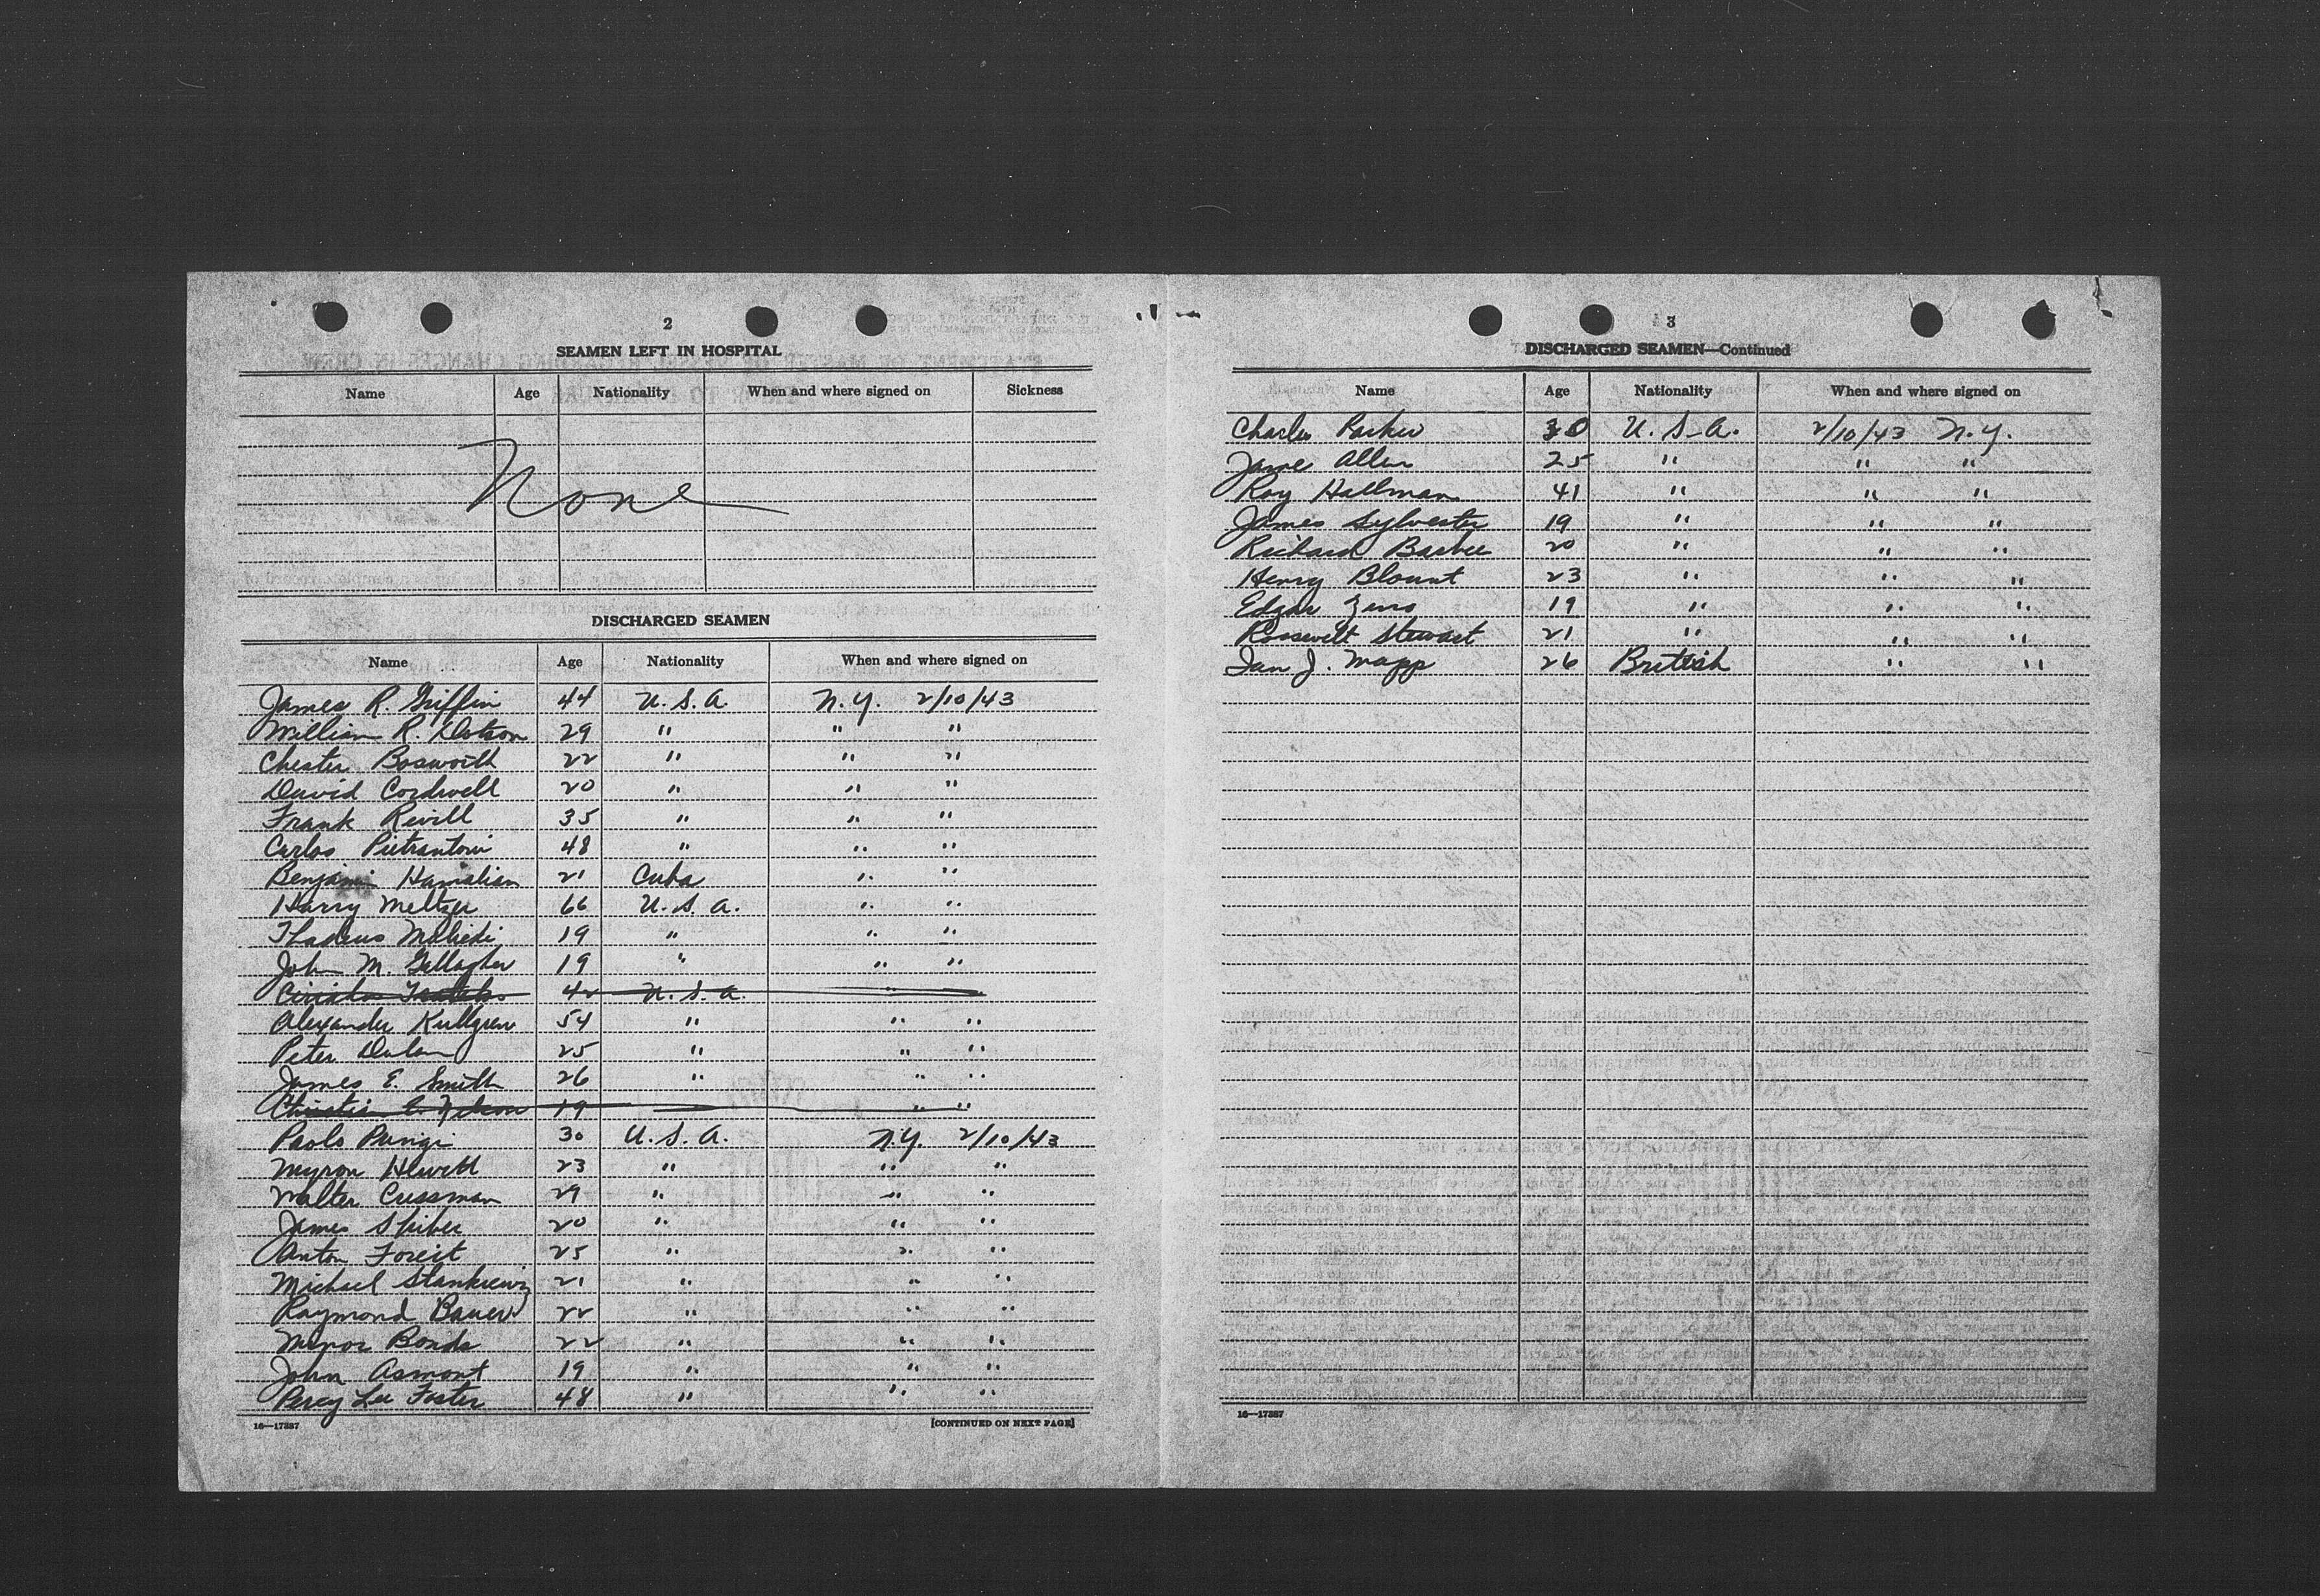 2
SEAMEN LEFT IN HOSPITAL
Name Age Nationality When and where signed on Sickness
None
DISCHARGED SEAMEN
Name Age Nationality When and where signed on
James R. Griffin 44 U.S.A. N.Y. 2/10/43
William R. Dotson 29 " " "
Chester Bosworth 22 " " "
David Cordwell 20 " " "
Frank Revill 35 " " "
Carlos Pietrantoni 48 " " "
Benjamin 21 Cuba " "
Harry Meltzer 66 U.S.A. " "
Thadeus 19 " " "
John M. Gallagher 19 " " "
42 U.S.A. "
Alexander Kullgren 54 " " "
Peter 25 " " "
James E. Smith 26 " " "
Christian 19 " "
Paolo 30 U.S.A. N.Y. 2/10/43
Myron Hewitt 23 " " "
Walter Cussman 29 " " "
James 20 " " "
Anton Forest 25 " " "
Michael Stankiewiz 21 " " "
Raymond Bauer 22 " " "
Bonds 22 " " "
John Asmont 19 " " "
Percy Lee Foster 48 " " "
16—17387 [CONTINUED ON NEXT PAGE]
3
DISCHARGED SEAMEN—Continued
Name Age Nationality When and where signed on
Charles Parker 30 U.S.A. 2/10/43 N.Y.
Jame Allen 25 " " "
Roy Hallman 41 " " "
James Sylvester 19 " " "
Richard Barbee 20 " " "
Henry Blount 23 " " "
Edgar 19 " " "
Roosevelt Stewart 21 " " "
Ian J. Mapp 26 British " "
16—17387